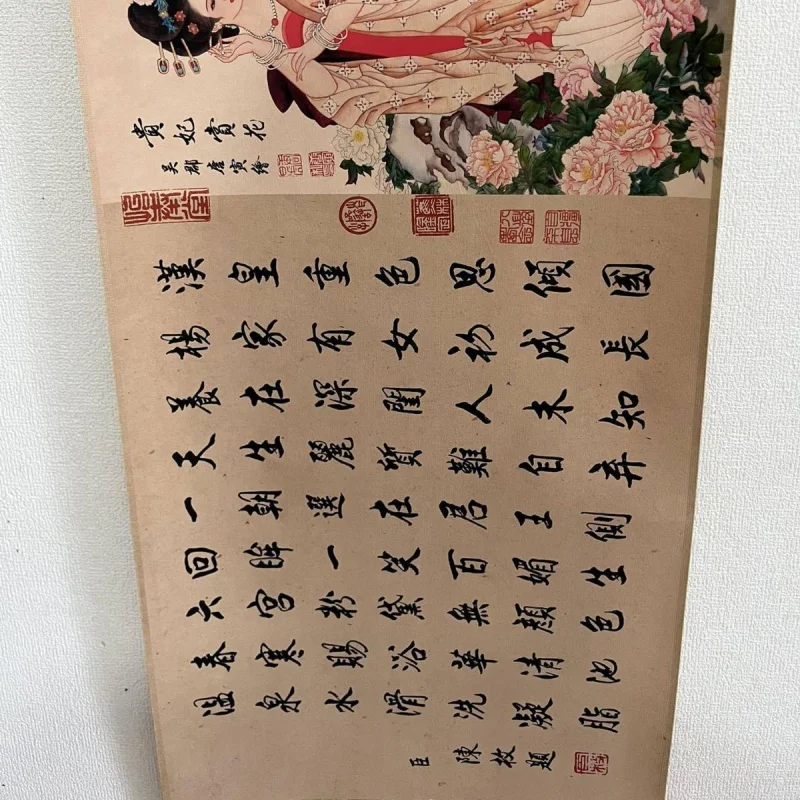 貴妃賞花
吳郡唐寅繪
漢皇重色思傾國
楊家有女初成長
養在深閨人未知
天生麗質難自弃
一朝選在君王側
回眸一笑百媚生
六宮粉黛無顏色
春寒賜浴華清池
溫泉水滑洗凝脂
臣陳枚題